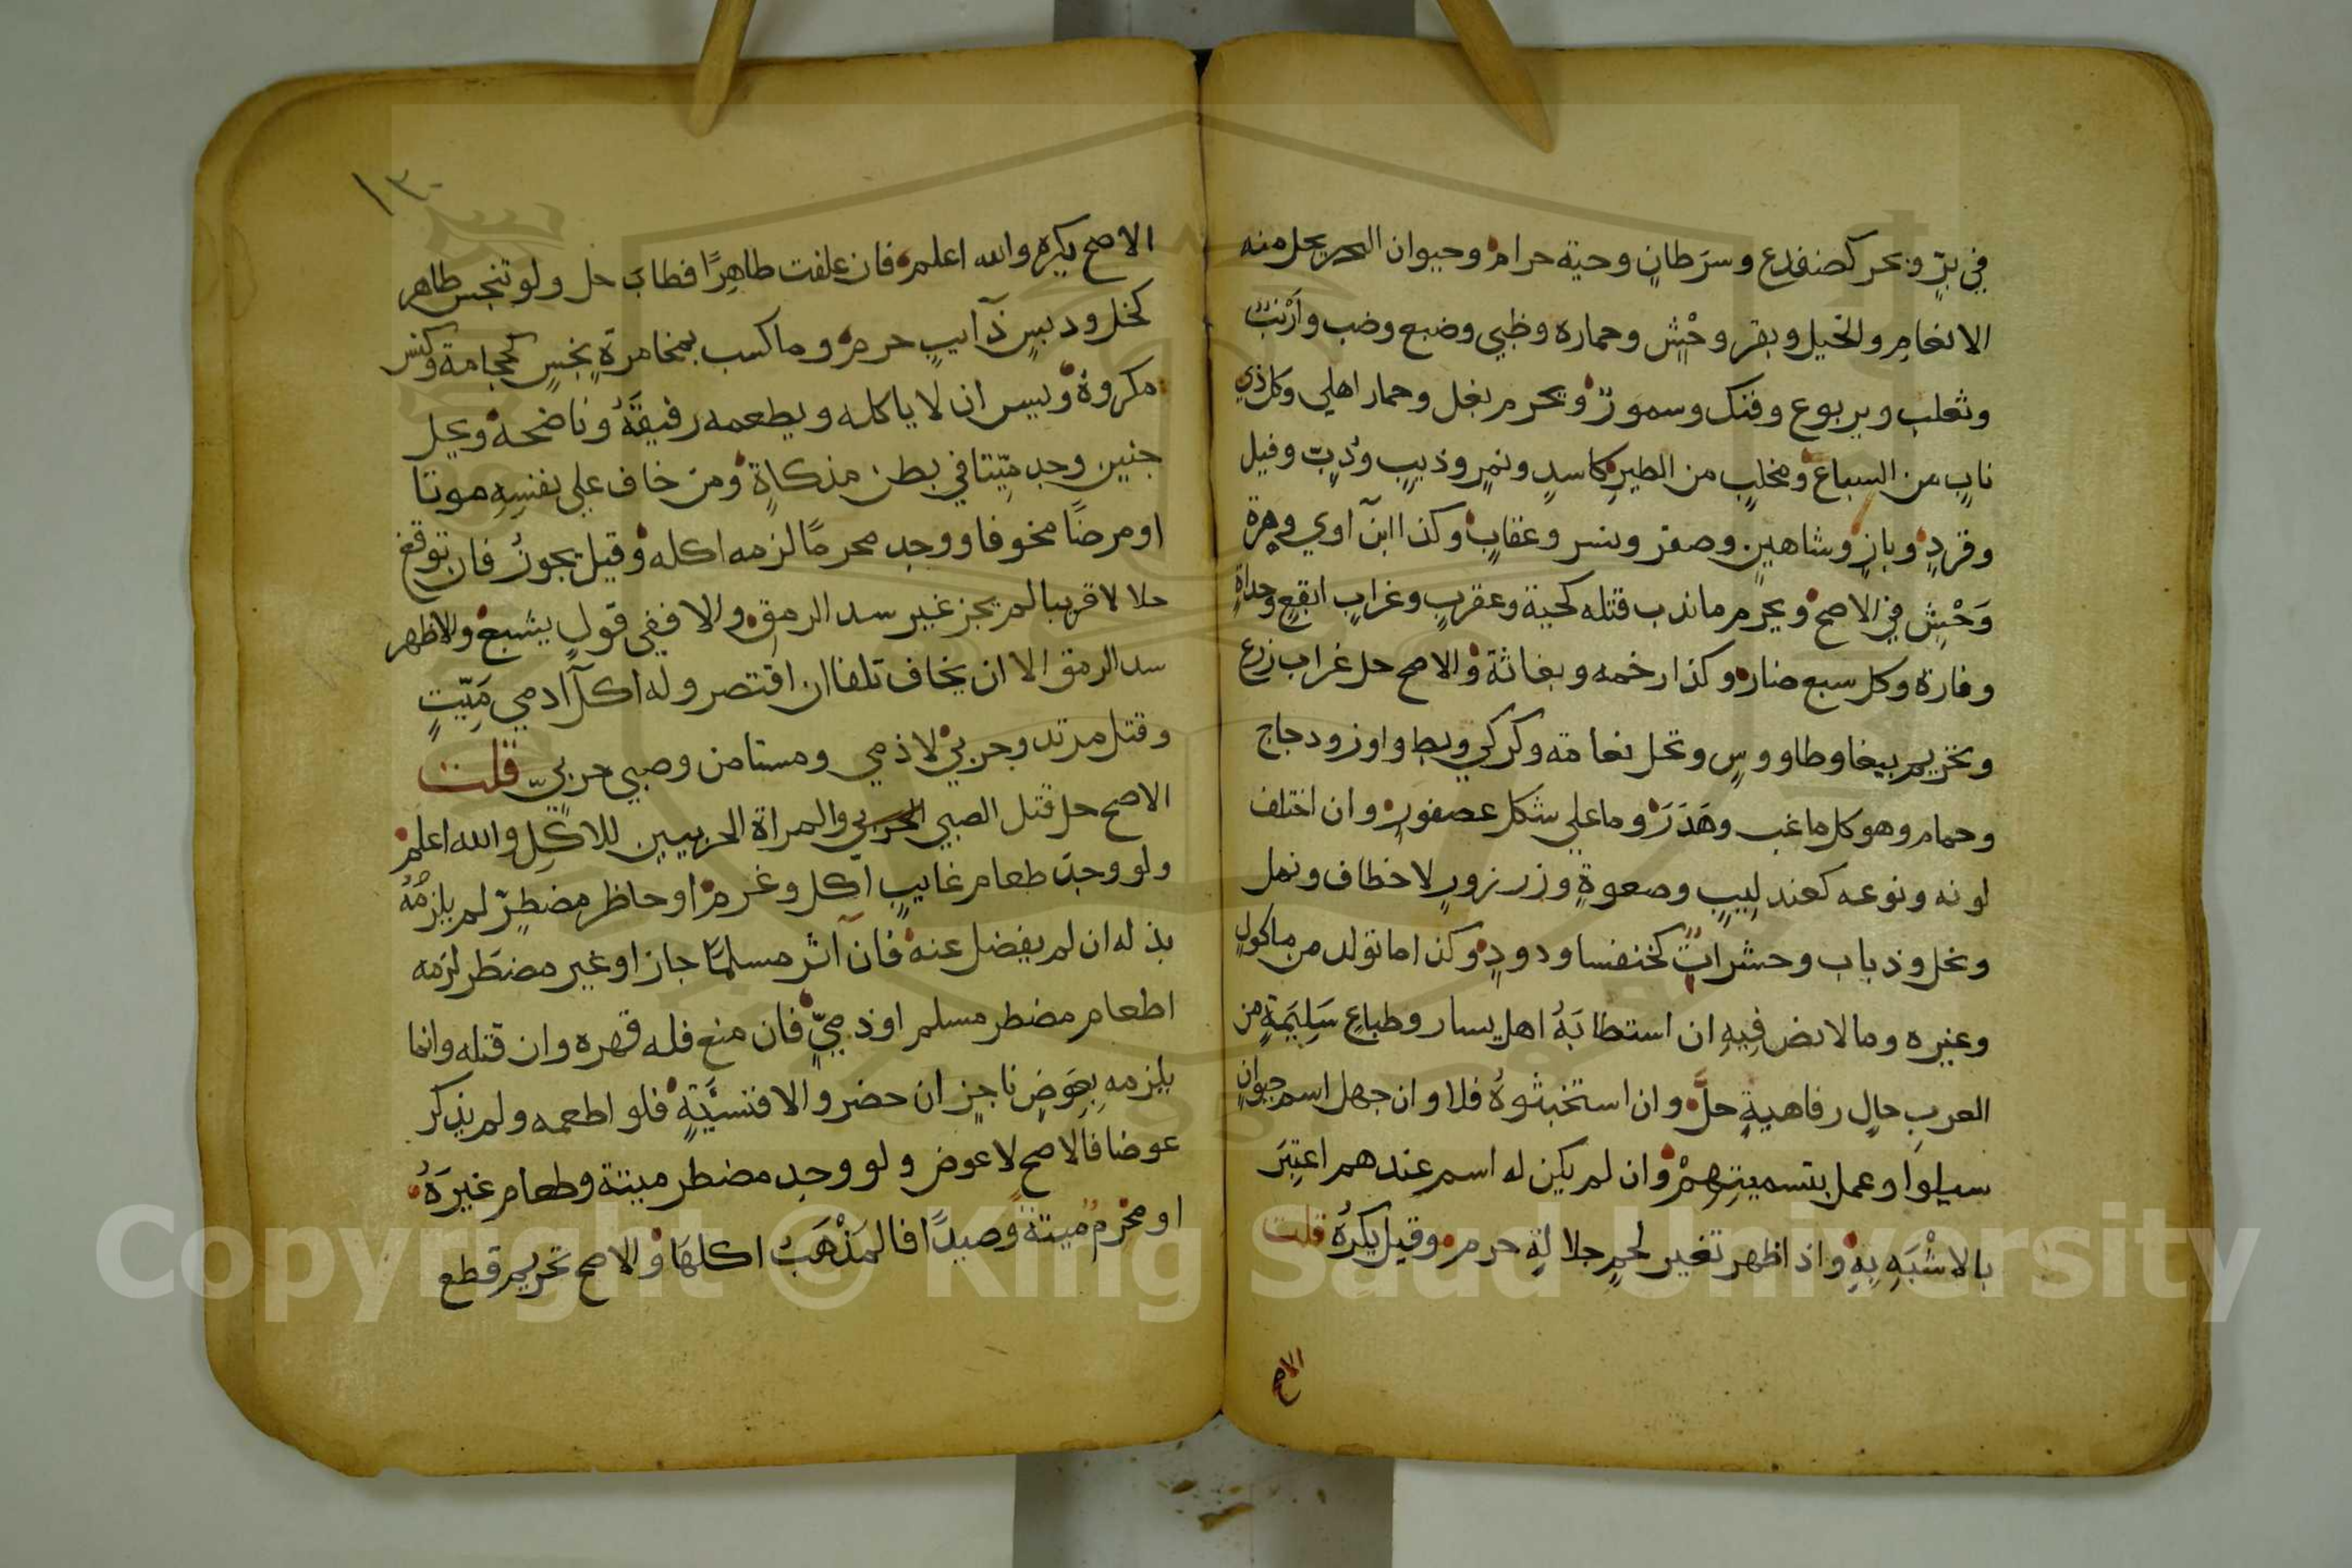 في برٍّ وبحر كضفدع وسرَطانٍ وحية حرام وحيوان البحر يحل منه
الانعامِ والخيل وبقر وحْشٍ وحماره وظبي وضبع وضب وارْنبٌ
وثعلب ويربوع وفنك وسمورٌ ويحرم بغل وحمار اهلي وكل ذي
نابٍ من السباع ومخلبٍ من الطيرِ كاسدٍ ونمرٍ وذيبٍ ودُبٍّ وفيل
وقردٍ وبازٍ وشاهينٍ وصقر ونسر وعقابٍ وكذا ابن آوي وهرة
وَحْشٍ في الاصح ويحرم ماندب قتله كحية وعقربٍ وغرابٍ ابقعٍ وحداةٍ
وفارة وكل سبع ضار وكذا رخمه وبغاثة والاصح حل غراب زرع
وتحريم ببغا وطاووسٍ وتحل نعامة وكركي وبط واوز ودجاج
وحمام وهو كل ماعب وهَدَرَ وما علي شكل عصفورٍ وان اختلف
لونه ونوعه كعندليبٍ وصعوةٍ وزرزورٍ لاخطاف ونمل
ونحل وذباب وحشراتٌ كخنفسا ودودٍ وكذا ماتولد من ماكولٍ
وغيره ومالانص فِيهِ ان استطابَهُ اهل يسار وطباعٍ سَلِيَمةٍ من
العربِ حالٍ رفاهيةٍ حلَّ وان استخبثوهُ فلا وان جهل اسم حيوانٍ
سيلوا وعمل بتسميتِهِمْ وان لم يكن له اسم عندهم اعتبَرَ
بالاشْبَهِ بِهِ واذا ظهر تغير لحمٍ جلالةٍ حرم وقيل يكرهُ قلت
الاصح
١٣٠
الاصح يكره والله اعلم فان علفت طاهِرًا فطابَ حل ولو تنجس طاهر
كخل ودبسٍ ذآيبٍ حرم وما كسب بمخامرةٍ نجسٍ كحجامة وكنس
مكروة ويسن ان لا ياكله ويطعمه رفيقَهُ وناضحه ويحل
جنين وجد ميِّتا في بطن مذكاةٍ ومن خاف علي نفسِهِ موتا
او مرضًا مخوفا ووجد محرمًا لزمه اكله وقيل يجوزُ فان توقع
حلالا قريبا لم يجز غير سد الرمق والا ففي قولٍ يشبع والاظهر
سد الرمق الا ان يخاف تلفا ان اقتصر وله اكل آدمي مَيِّتٍ
وقتل مرتد وحربيٍّ لا ذمي ومستامن وصبي حربيّ قلت
الاصح حل قتل الصبي الحربي والمراة الحربيين للاكلِ والله اعلم
ولو وجدَ طعام غايبٍ اكل وغرم او حاظر مضطرٍّ لم يلزمُهُ
بذله ان لم يفضل عنه فان آثر مسلمًا جاز او غير مضطَر لزمه
اطعام مضطر مسلم او ذميٍّ فان منع فله قهره وان قتله وانما
يلزمهِ بِعِوَضٍ ناجزٍ ان حضر والا فنسيَّةٍ فلو اطعمه ولم يذكر
عوضا فالاصح لا عوض ولو وجد مضطر ميتة وطعام غيرَهُ
او محرمٌ ميتةً وصيدًا فالمَذْهَبُ اكلهَا والاصح تحريم قطع
Copyright © King Saud University